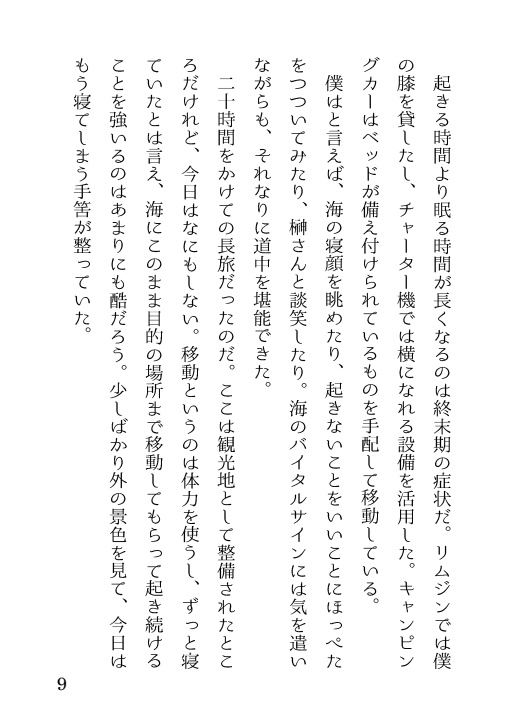 起きる時間より眠る時間が長くなるのは終末期の症状だ。リムジンでは僕
の膝を貸したし、チャーター機では横になれる設備を活用した。キャンピン
グカーはベッドが備え付けられているものを手配して移動している。
　僕はと言えば、海の寝顔を眺めたり、起きないことをいいことにほっぺた
をつついてみたり、榊さんと談笑したり。海のバイタルサインには気を遣い
ながらも、それなりに道中を堪能できた。
　二十時間をかけての長旅だったのだ。ここは観光地として整備されたとこ
ろだけれど、今日はなにもしない。移動というのは体力を使うし、ずっと寝
ていたとは言え、海にこのまま目的の場所まで移動してもらって起き続ける
ことを強いるのはあまりにも酷だろう。少しばかり外の景色を見て、今日は
もう寝てしまう手筈が整っていた。
9